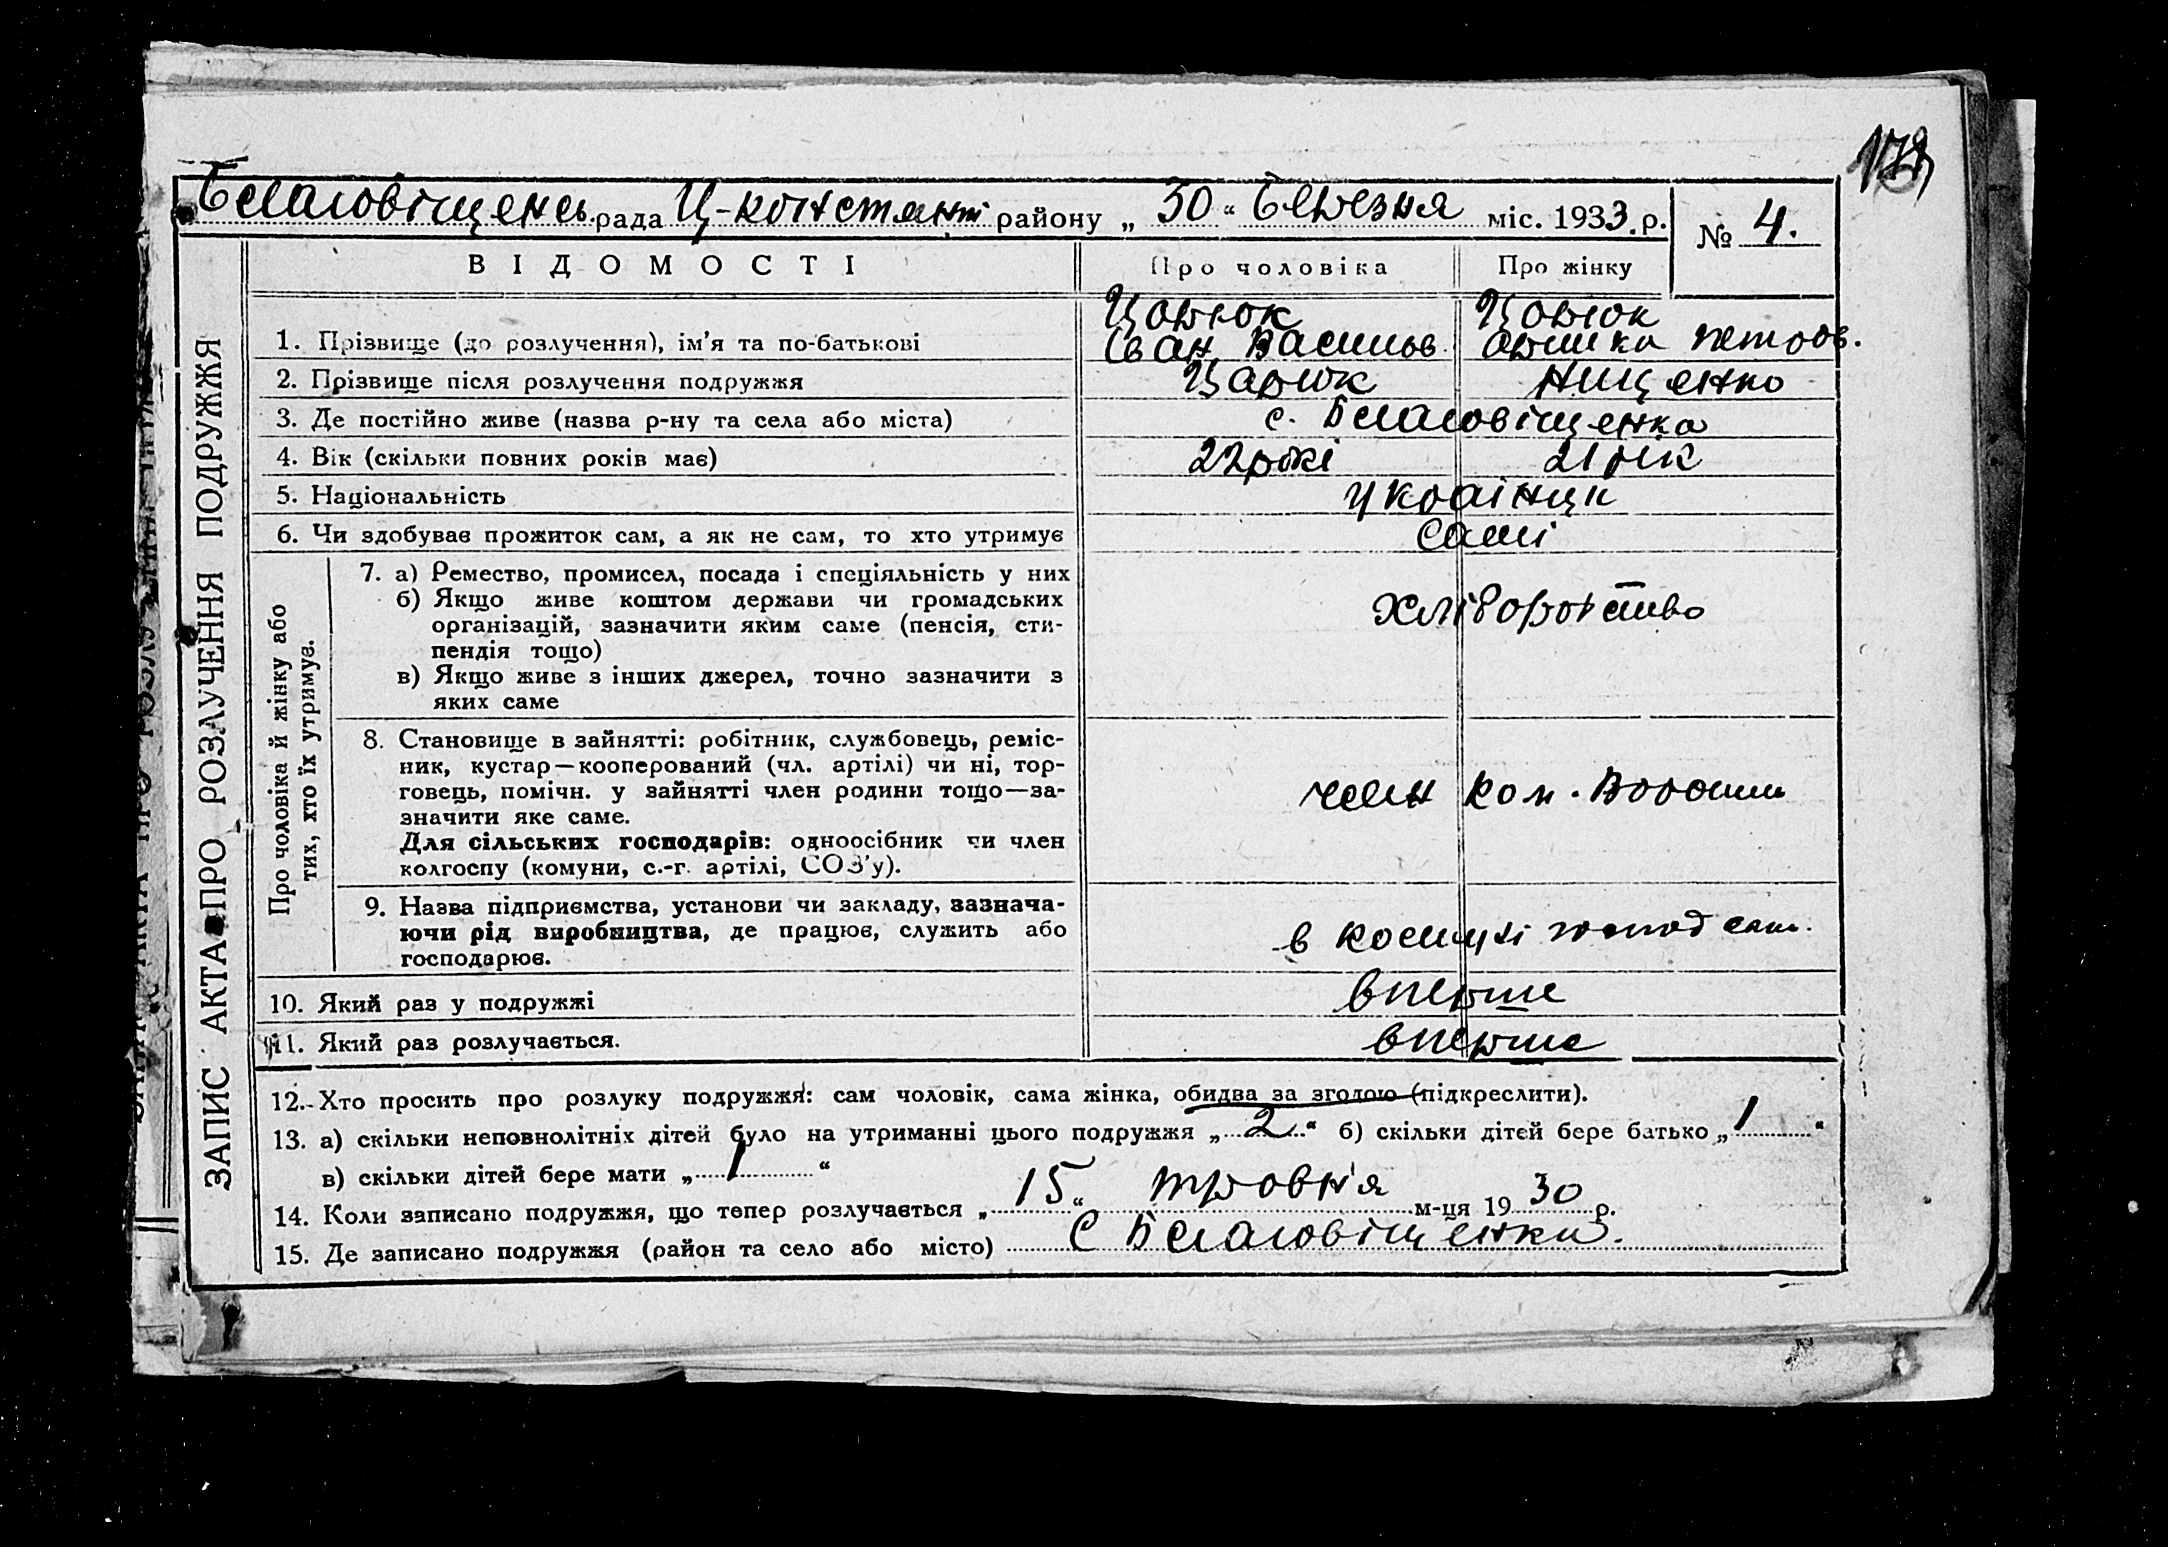 Благовіщенсь. рада Ц-констант району „ 30 “ Березня міс. 1933.р. № 4.
ВІДОМОСТІ Про чоловіка Про жінку
ЗАПИС АКТА ПРО РОЗЛУЧЕННЯ ПОДРУЖЖЯ
Царюк Царюк
1. Прізвище (до розлучення), ім'я та по-батькові Іван Васильов. петров.
2. Прізвище після розлучення подружжя Царюк Нищенко
3. Де постійно живе (назва р-ну та села або міста) с. Благовіщенка
4. Вік (скільки повних років має) 22 рокі 21 рік
5. Національність Українци
6. Чи здобуває прожиток сам, а як не сам, то хто утримує самі
Про чоловіка й жінку або
тих, хто їх утримує.
7. а) Ремество, промисел, посада і спеціяльність у них
б) Якщо живе коштом держави чи громадських хліборобство
організацій, зазначити яким саме (пенсія, сти-
пендія тощо)
в) Якщо живе з інших джерел, точно зазначити з
яких саме
8. Становище в зайнятті: робітник, службовець, реміс-
ник, кустар—кооперований (чл. артілі) чи ні, тор-
говець, помічн. у зайнятті член родини тощо—за- член ком. Ворошил
значити яке саме.
Для сільських господарів: одноосібник чи член
колгоспу (комуни, с.-г. артілі, СОЗ'у).
9. Назва підприємства, установи чи закладу, зазнача-
ючи рід виробництва, де працює, служить або в комуні
господарює.
10. Який раз у подружжі вперше
11. Який раз розлучається. вперше
12. Хто просить про розлуку подружжя: сам чоловік, сама жінка, обидва за згодою (підкреслити).
13. а) скільки неповнолітніх дітей було на утриманні цього подружжя „ 2 “ б) скільки дітей бере батько „ 1 “
в) скільки дітей бере мати „ 1 “
14. Коли записано подружжя, що тепер розлучається „ 15 “ травня м-ця 19 30 р.
15. Де записано подружжя (район та село або місто) С Благовіщенка.